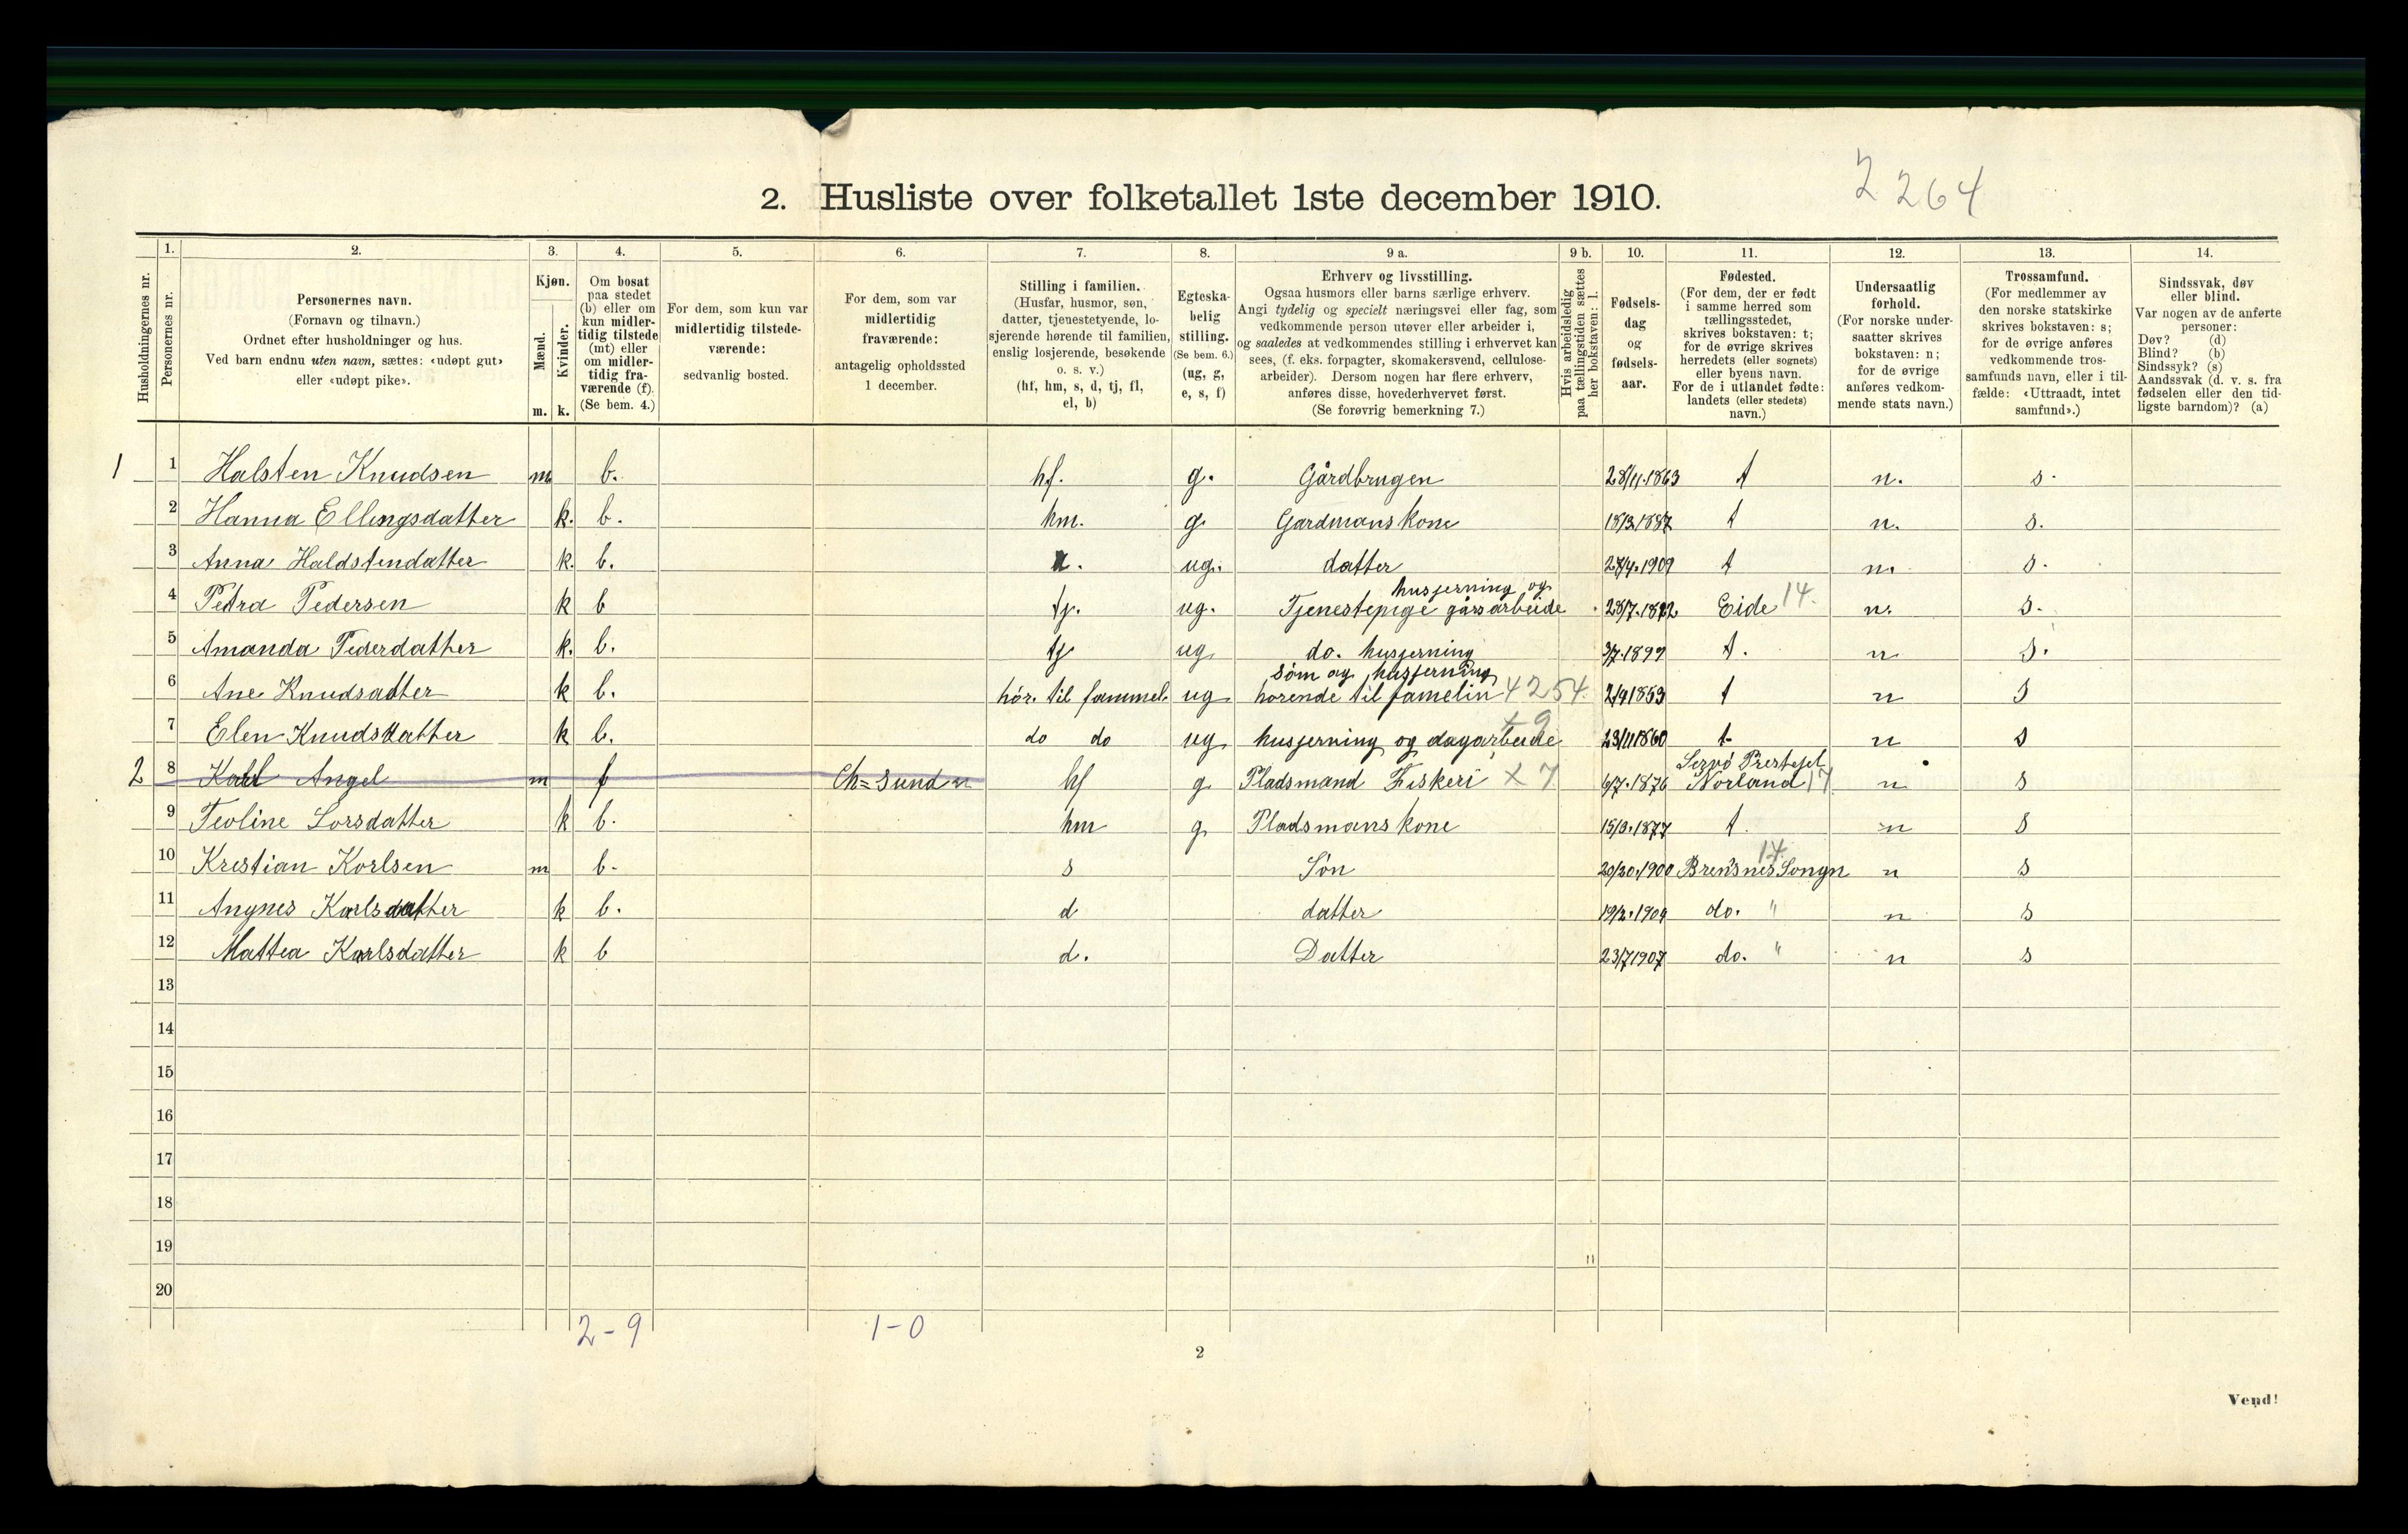 2 264
2. Husliste over folketallet 1ste december 1910.
Husholdningernes nr.
1. Personernes nr.
2. Personernes navn.
(Fornavn og tilnavn.)
Ordnet efter husholdninger og hus.
Ved barn endnu uten navn, sættes: «udøpt gut»
eller «udøpt pike».
3. Kjøn.
Mænd. Kvinder.
m. k.
4. Om bosat
paa stedet
(b) eller om
kun midler-
tidig tilstede
(mt) eller
om midler-
tidig fra-
værende (f).
(Se bem. 4.)
5. For dem, som kun var
midlertidig tilstede-
værende:
sedvanlig bosted.
6. For dem, som var
midlertidig
fraværende:
antagelig opholdssted
1 december.
7. Stilling i familien.
(Husfar, husmor, søn,
datter, tjenestetyende, lo-
sjerende hørende til familien,
enslig losjerende, besøkende
o. s. v.)
(hf, hm, s, d, tj, fl,
el, b)
8. Egteska-
belig
stilling.
(Se bem. 6.)
(ug, g,
e, s, f)
9 a. Erhverv og livsstilling.
Ogsaa husmors eller barns særlige erhverv.
Angi tydelig og specielt næringsvei eller fag, som
vedkommende person utøver eller arbeider i,
og saaledes at vedkommendes stilling i erhvervet kan
sees, (f. eks. forpagter, skomakersvend, cellulose-
arbeider). Dersom nogen har flere erhverv,
anføres disse, hovederhvervet først.
(Se forøvrig bemerkning 7.)
9 b. Hvis arbeidsledig
paa tællingstiden sættes
her bokstaven: l.
10. Fødsels-
dag
og
fødsels-
aar.
11. Fødested.
(For dem, der er født
i samme herred som
tællingsstedet,
skrives bokstaven: t;
for de øvrige skrives
herredets (eller sognets)
eller byens navn.
For de i utlandet fødte:
landets (eller stedets)
navn.)
12. Undersaatlig
forhold.
(For norske under-
saatter skrives
bokstaven: n;
for de øvrige
anføres vedkom-
mende stats navn.)
13. Trossamfund.
(For medlemmer av
den norske statskirke
skrives bokstaven: s;
for de øvrige anføres
vedkommende tros-
samfunds navn, eller i til-
fælde: «Uttraadt, intet
samfund».)
14. Sindssvak, døv
eller blind.
Var nogen av de anførte
personer:
Døv? (d)
Blind? (b)
Sindssyk? (s)
Aandssvak (d. v. s. fra
fødselen eller den tid-
ligste barndom)? (a)
1 1 Halsten Knudsen m b. hf. g. Gårdbrugen 28/11.1863 t n. s.
2 Hanna Ellingsdatter k. b. hm. g. Gardmanskone 18/3.1887 t n. s.
3 Anna Haldstendatter k. b. ug. datter 27/4.1909 t n. s.
husjerning og
4 Petra Pedersen k b tj. ug. Tjenestepige 28/7.1892 Eide 14. n. s.
5 Amanda Pederdatter k. b. tj ug do. husjerning 3/7.1899 t. n s.
søm og husjerning
6 Ane Knudsdatter k b. hör. til fammel. ug horende til famelin 4254. 2/9 1853 t n s
+ 9
7 Elen Knudsdatter k b. do do ug husjerning og dagarbeide 23/11 1860 t n s
Prestejel
2 8 Karl Angel m f Ch=sund n hf g Pladsmand Fiskeri X 7 6/7.1876 Norland 17 n s
9 Teoline Lorsdatter k b. hm g Pladsmanskone 15/3.1877 t. n s
10 Krestian Korlsen m b. s Søn 20/20.1900 Brensnes Songn 14 n s
11 Angnes Karlsdatter k b. d datter 19/2.1904 do. " n s
12 Mattea Karlsdatter k b d. Datter 23/7 1907 do. " n s
13
14
15
16
17
18
19
20
2 - 9 1 - 0
2
Vend!